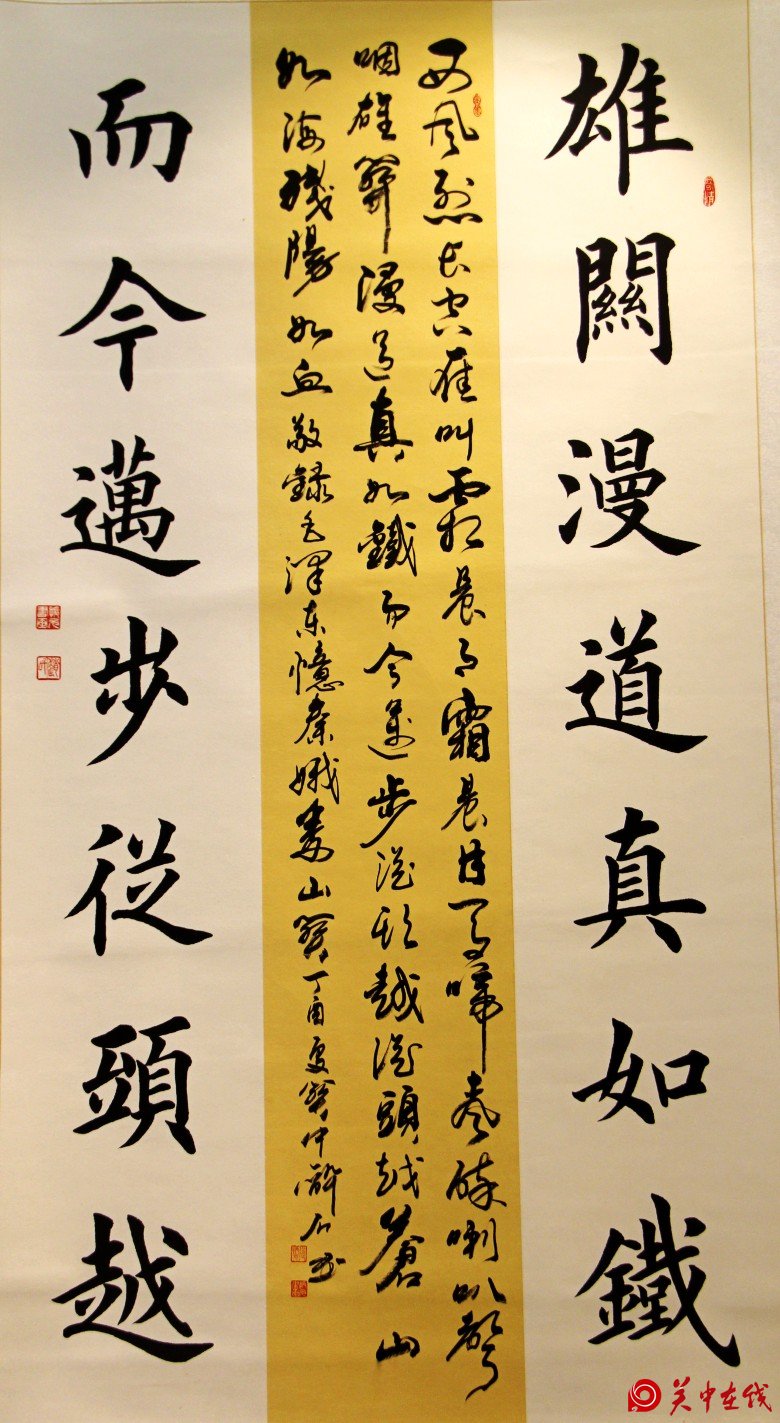 雄關漫道真如鐵
西风烈长空雁叫霜晨月霜晨月马啼声碎喇叭聲
咽雄關漫道真如鐵而今迈步從头越從頭越蒼山
如海殘陽如血敬錄毛澤东憶秦娥娄山關丁酉夏關中石书
而今邁步從頭越
关中在线